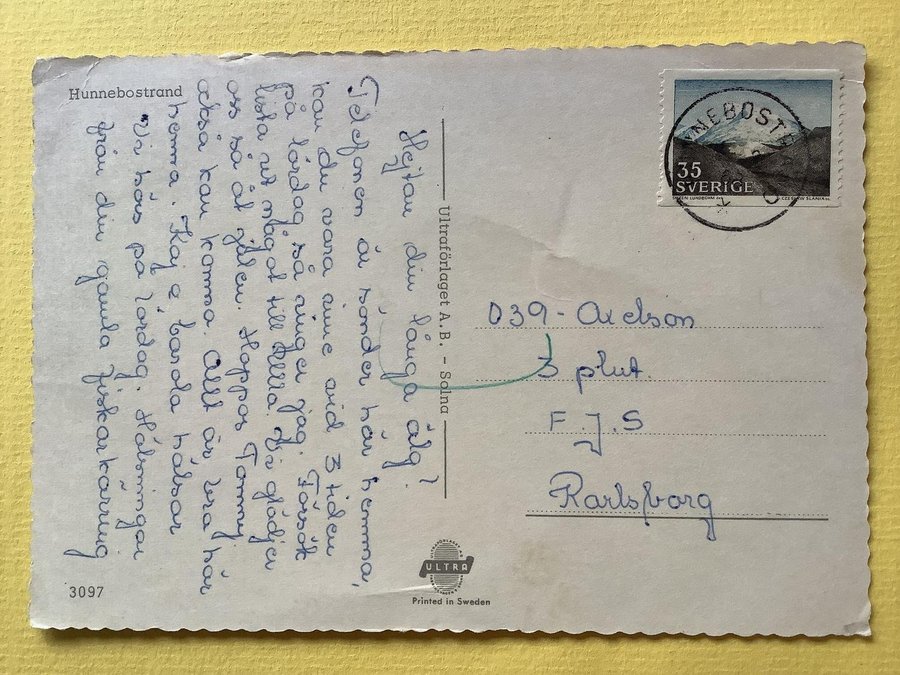 Hunnebostrand
Hejsan din långa älg!
Telefonen är sönder här hemma,
kan du vara inne vid 3 tiden
på lördag så ringer jag. Försök
lista ut något till Ulla. Vi glädjer
oss så åt giluu. Hoppas Tommy
också kan komma. Allt är bra här
hemma. Kaj o Carola hälsar
Vi hörs på lördag. Hälsningar
från din gamla fiskarkäring
3097
Ultraförlaget A.B. - Solna
ULTRA
Printed in Sweden
NEBOST
35
SVERIGE
039 - Axelson
3 plut.
F.J.S
Karlsborg